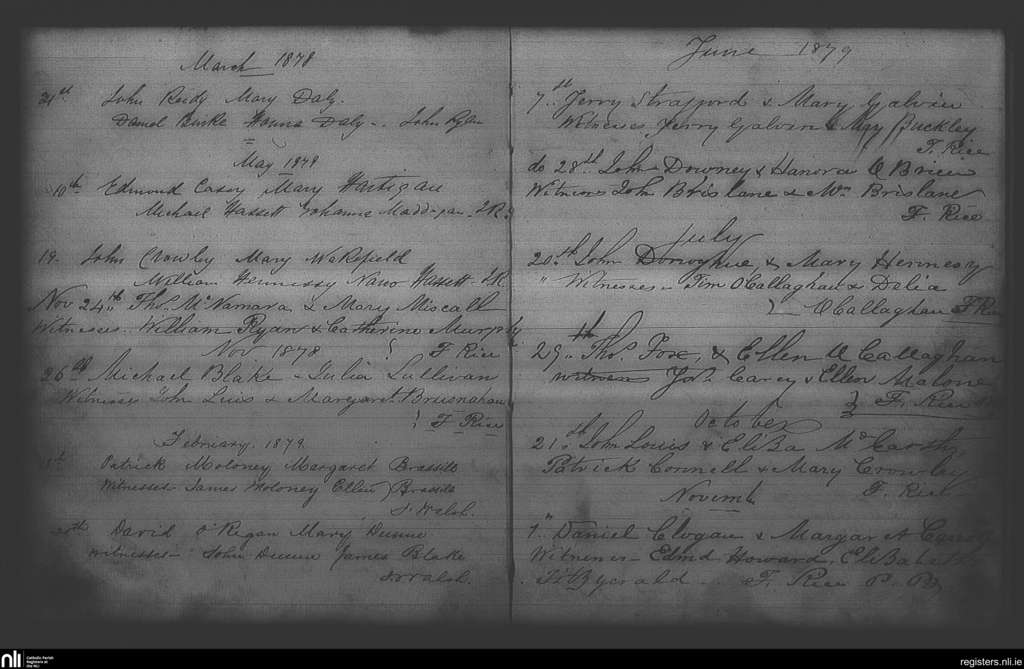 March 1878
John Reidy Mary Daly.
Daniel Burke Honna Daly - John Ryan
May 1878
10th Edmond Casey Mary Hartigan
Michael Hassett Johanna Madigan
19. John Crowley Mary Wakefield
William Hennessy Hassett
Nov 24th Thos. McNamara, & Mary Miscall
Witnesses. William Ryan & Catherine Murphy
Nov 1878 F Rice
26th Michael Blake - Julia Sullivan
Witnesses John & Margaret Brusnahan
F Rice
February, 1879
Patrick Moloney Margaret Brassils
Witnesses James Moloney Ellen Brassils
J. Walsh.
David O'Regan Mary Dunne
Witnesses - John Dunne James Blake
J. Walsh.
June 1879
7th Jerry Strafford & Mary Galvin
Witnesses, Jerry Galvin & May Buckley
F. Rice
do 28th John Downey & Hanora O Brien
Witness John Brislane & Wm Brislane
F. Rice
July
20th John Donoghue & Mary Hennesy
" Witnesses - Tim O'Callaghan & Delia
O Callaghan F Rice
29th Thos. Fox, & Ellen O Callaghan
witness Carey & Ellen Malone
F. Rice
October
21st John Louis & Eliza McCarthy
Patrick Connell & Mary Crowley
F. Rice
Novemb
1" Daniel Clogan & Margaret
Witness - Edmd Howard, Elizabeth
Fitzgerald - F. Rice P. P.
nli Catholic Parish
Registers at
the NLI
registers.nli.ie